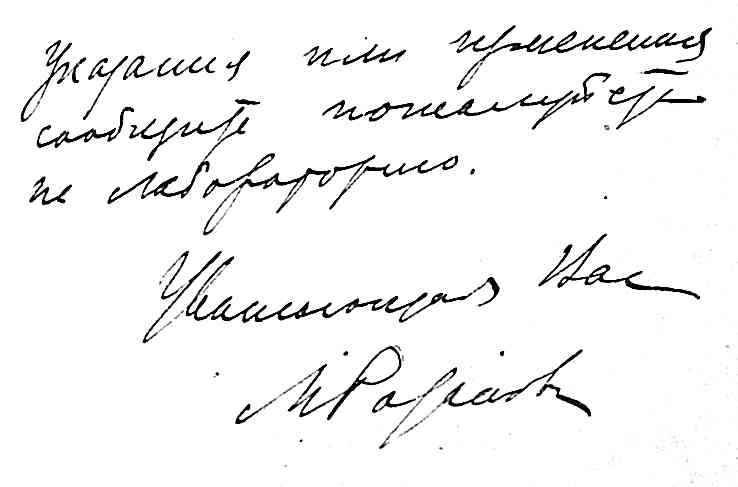 Указания или изменения
сообщите пожалуйста
на лабораторию.
Уважающая Вас